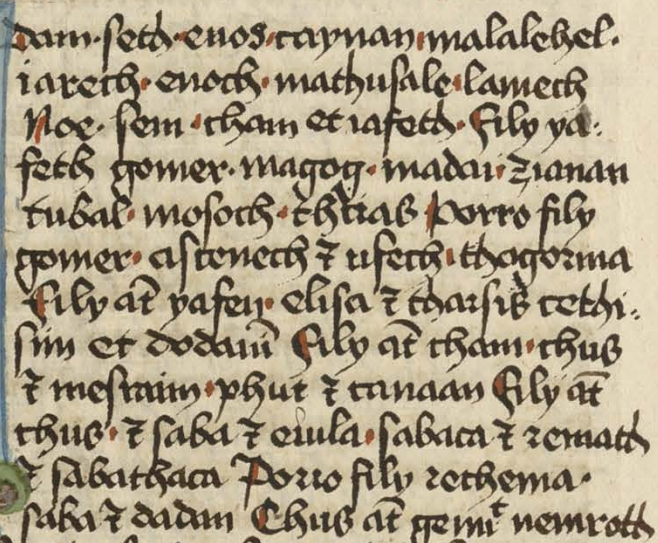 dam · seth · enos · caynan · malalehel ·
iarech · enoch · mathusale · lamech
Noe · sem · cham et iafeth · Fily ya:
feth gomer · magog · madai · ⁊ ianan
tubal · mosoch · thiras Porro fily
gomer · asscenech ⁊ rifech · thogorma
Fily at̄ yafen · elisa ⁊ tharsis cethi:
sim et dodaim̄ Fily at̄ cham · chus
⁊ mesraim · phut ⁊ canaan Fily at̄
chus · ⁊ saba ⁊ euila · sabata ⁊ remath
⁊ sabathaca Porro fily rethema ·
saba ⁊ dadan Chus at̄ genuͭ nemroth